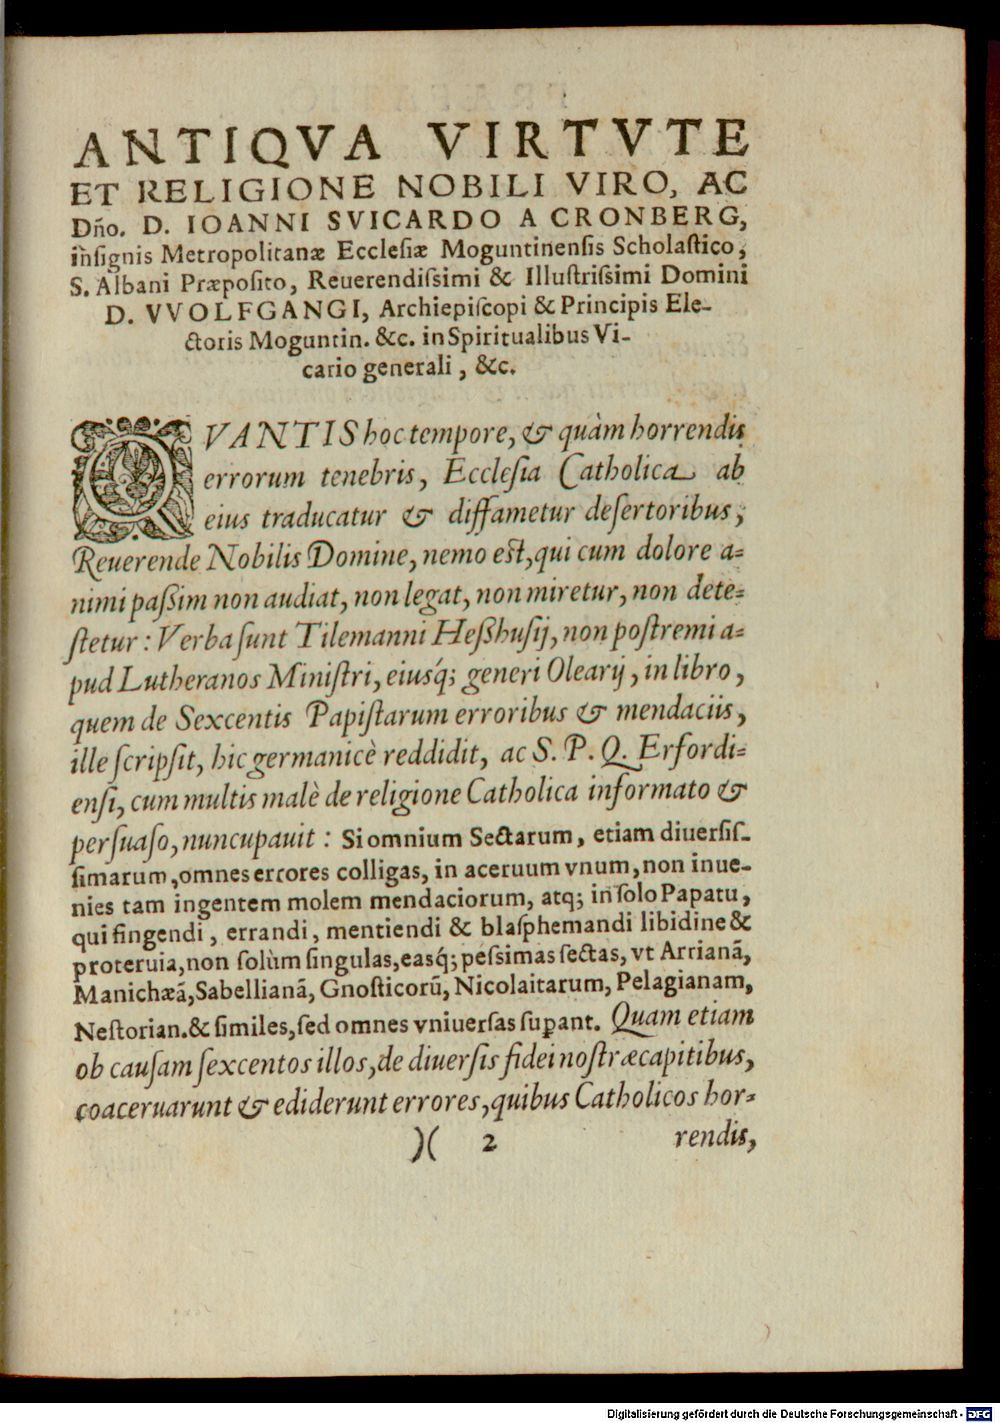 ANTIQVA VIRTVTE
ET RELIGIONE NOBILI VIRO, AC
Dño. D. IOANNI SVICARDO A CRONBERG,
inſignis Metropolitanæ Eccleſiæ Moguntinenſis Scholaſtico,
S. Albani Præpoſito, Reuerendiſsimi & Illuſtriſsimi Domini
D. VVOLFGANGI, Archiepiſcopi & Principis Ele-
ctoris Moguntin. &c. in Spiritualibus Vi-
cario generali, &c.
QVANTIS hoc tempore, & quàm horrendis
errorum tenebris, Eccleſia Catholica ab
eius traducatur & diffametur deſertoribus,
Reuerende Nobilis Domine, nemo eſt, qui cum dolore a-
nimi paßim non audiat, non legat, non miretur, non dete-
ſtetur: Verba ſunt Tilemanni Heßhuſij, non poſtremi a-
pud Lutheranos Miniſtri, eiusq́; generi Olearij, in libro,
quem de Sexcentis Papiſtarum erroribus & mendaciis,
ille ſcripſit, hic germanicè reddidit, ac S. P. Q. Erfordi-
enſi, cum multis malè de religione Catholica informato &
perſuaſo, nuncupauit: Si omnium Sectarum, etiam diuerſiſ-
ſimarum, omnes errores colligas, in aceruum vnum, non inue-
nies tam ingentem molem mendaciorum, atq; in ſolo Papatu,
qui fingendi, errandi, mentiendi & blaſphemandi libidine &
proteruia, non ſolùm ſingulas, easq́; peſsimas ſectas, vt Arrianã,
Manichæã, Sabellianã, Gnoſticorũ, Nicolaitarum, Pelagianam,
Neſtorian. & ſimiles, ſed omnes vniuerſas suꝑant. Quam etiam
ob cauſam ſexcentos illos, de diuerſis fidei noſtræ capitibus,
coaceruarunt & ediderunt errores, quibus Catholicos hor-
)( 2 rendis,
Digitalisierung gefördert durch die Deutsche Forschungsgemeinschaft - DFG